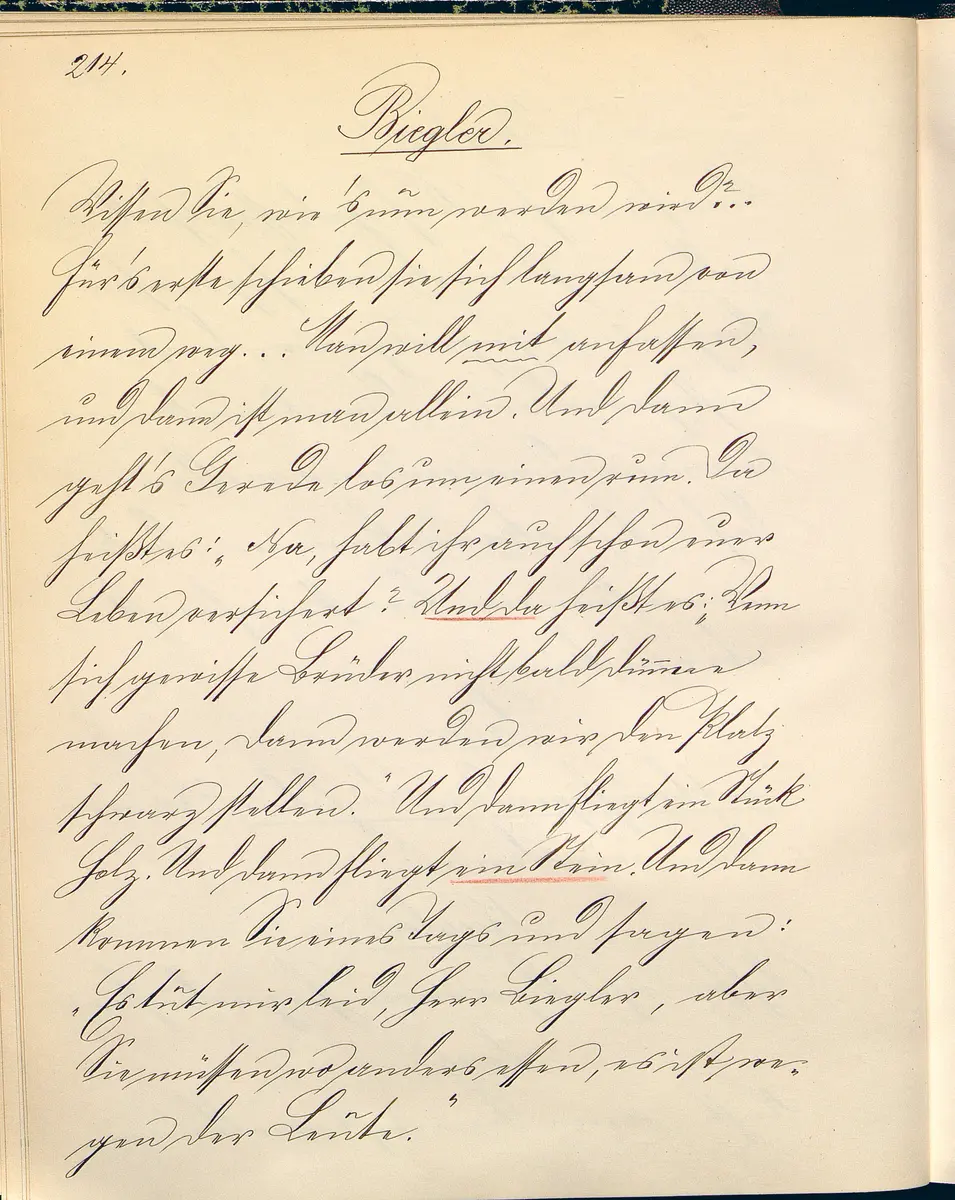 214.
Biegler.
Wissen Sie, wie's nun werden wird?..
Für's erste schieben sie sich langsam von
einem weg... Man will mit anfassen,
und dann ist man allein. Und dann
geht's Gerede los um einen rum. Da
heißt es: „Na, habt ihr auch schon euer
Leben versichert? Und da heißt es: „Wenn
sich gewisse Brüder nicht bald dünne
machen, dann werden wir den Platz
schwarz stellen." Und dann fliegt ein Stück
Holz. Und dann fliegt ein Stein. Und dann
kommen Sie eines Tags und sagen:
„Es tut mir leid, Herr Biegler, aber
Sie müssen wo anders essen, es ist we-
gen der Leute."